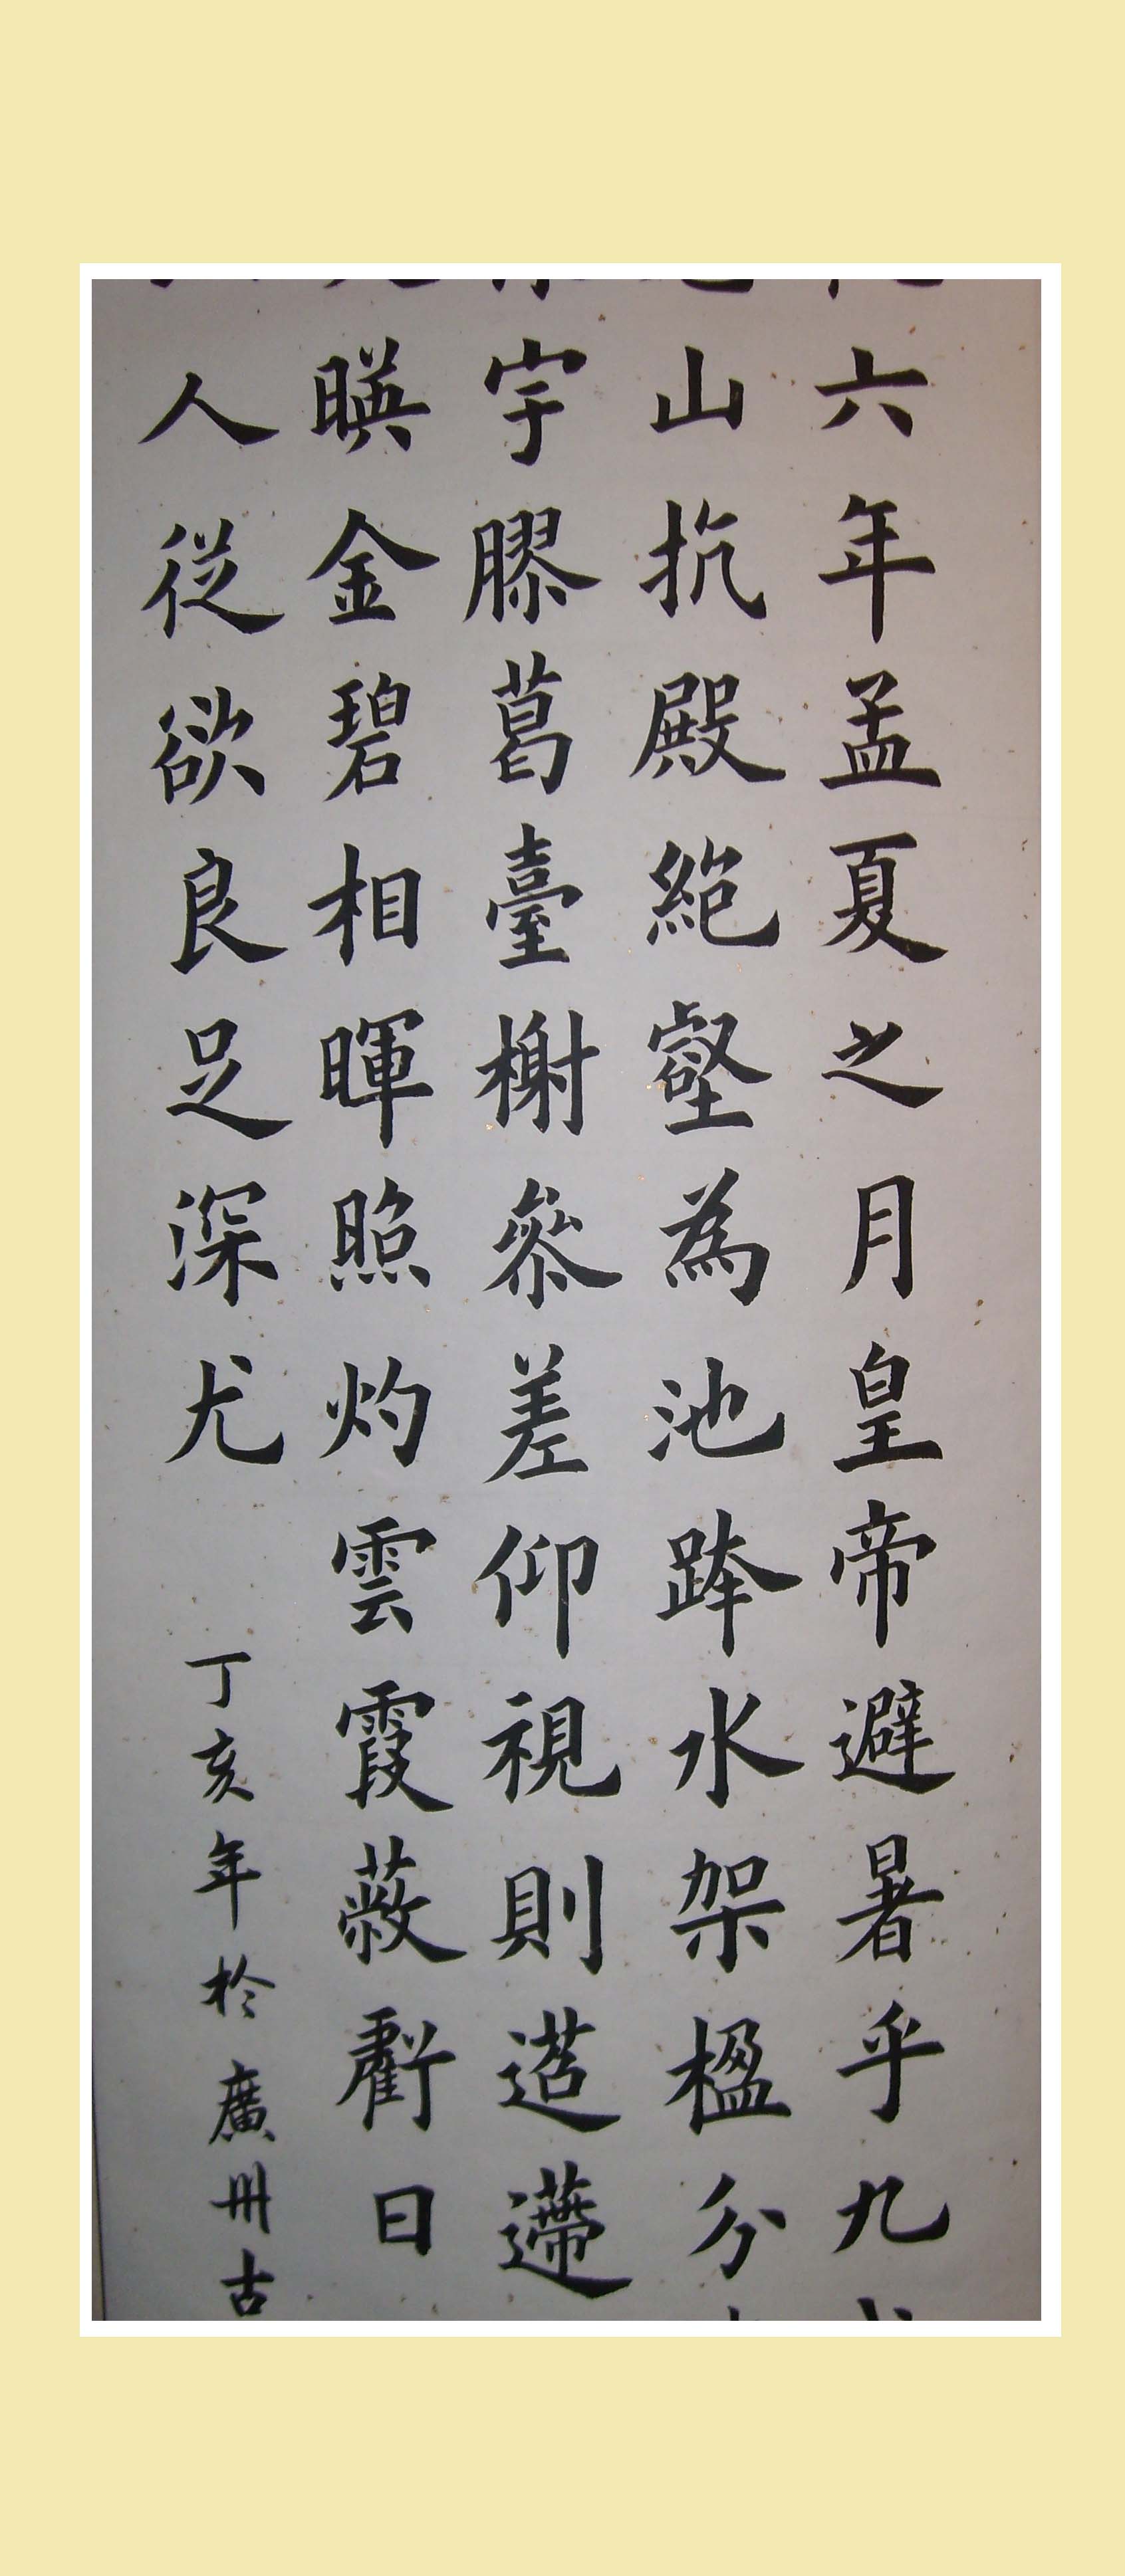 六年孟夏之月皇帝避暑乎九
山抗殿絶壑為池跨水架楹分
宇膠葛臺榭參差仰視則迢遰
暎金碧相暉照灼雲霞蔽虧日
人從欲良足深尤 丁亥年於廣州古